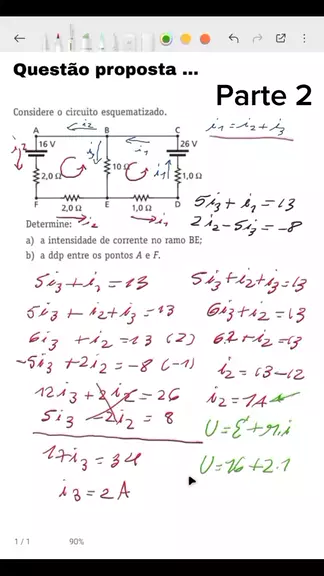 Questão proposta ...
Parte 2
Considere o circuito esquematizado.
i1 = i2 + i3
A
i2
B
C
i2
16 V
i3
i1
26 V
2,0 Ω
10 Ω
i1
1,0 Ω
F
2,0 Ω
E
1,0 Ω
D
i2
i1
5i3 + i1 = 13
2i2 - 5i3 = -8
Determine:
a) a intensidade de corrente no ramo BE;
b) a ddp entre os pontos A e F.
5i3 + i1 = 13
5i3 + i2 + i3 = 13
6i3 + i2 = 13 (2)
-5i3 + 2i2 = -8 (-1)
12i3 + 2i2 = 26
5i3 - 2i2 = 8
17i3 = 34
i3 = 2A
5i3 + i2 + i3 = 13
6i3 + i2 = 13
6.2 + i2 = 13
i2 = 13 - 12
i2 = 1A
U = E' + r.i
U = 16 + 2.1
1 / 1
90%